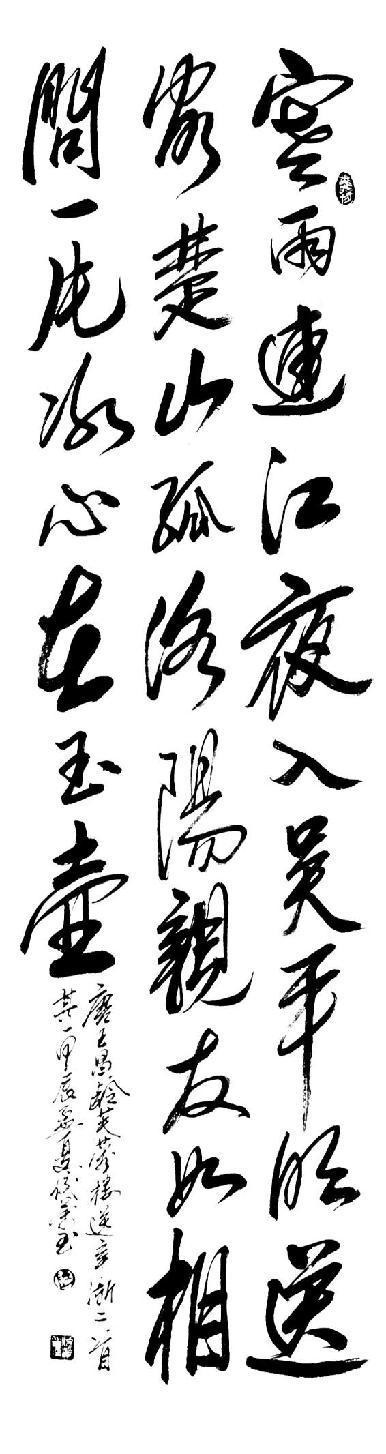 寒雨連江夜入吳平明送
客楚山孤洛陽親友如相
問一片冰心在玉壺
唐王昌齡芙蓉樓送辛漸二首
其一甲辰夏